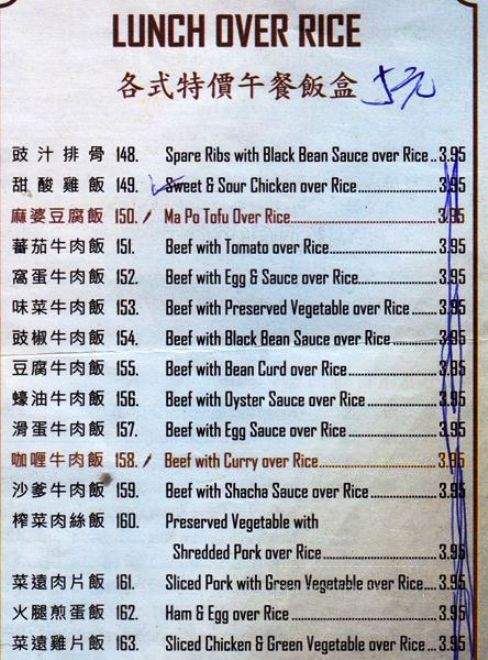 LUNCH OVER RICE
各式特價午餐飯盒 5元
豉汁排骨 148. Spare Ribs with Black Bean Sauce over Rice.. 3.95
甜酸雞飯 149. Sweet & Sour Chicken over Rice 3.95
麻婆豆腐飯 150. Ma Po Tofu Over Rice 3.95
蕃茄牛肉飯 151. Beef with Tomato over Rice 3.95
窩蛋牛肉飯 152. Beef with Egg & Sauce over Rice 3.95
味菜牛肉飯 153. Beef with Preserved Vegetable over Rice 3.95
豉椒牛肉飯 154. Beef with Black Bean Sauce over Rice 3.95
豆腐牛肉飯 155. Beef with Bean Curd over Rice 3.95
蠔油牛肉飯 156. Beef with Oyster Sauce over Rice 3.95
滑蛋牛肉飯 157. Beef with Egg Sauce over Rice 3.95
咖喱牛肉飯 158. Beef with Curry over Rice 3.95
沙爹牛肉飯 159. Beef with Shacha Sauce over Rice 3.95
榨菜肉絲飯 160. Preserved Vegetable with
Shredded Pork over Rice 3.95
菜遠肉片飯 161. Sliced Pork with Green Vegetable over Rice 3.95
火腿煎蛋飯 162. Ham & Egg over Rice 3.95
菜遠雞片飯 163. Sliced Chicken & Green Vegetable over Rice 3.95